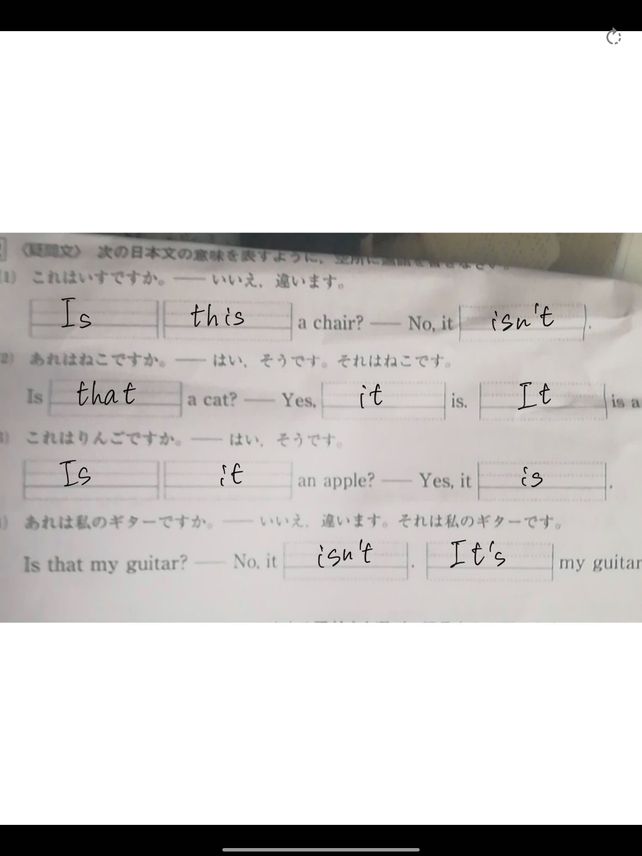 〈疑問文〉 次の日本文の意味を表すように，空所に適語を書きなさい。
(1) これはいすですか。—— いいえ，違います。
Is this a chair? —— No, it isn't.
2) あれはねこですか。—— はい，そうです。それはねこです。
Is that a cat? —— Yes, it is. It is a
3) これはりんごですか。—— はい，そうです。
Is it an apple? —— Yes, it is.
) あれは私のギターですか。—— いいえ，違います。それは私のギターです。
Is that my guitar? —— No, it isn't. It's my guitar